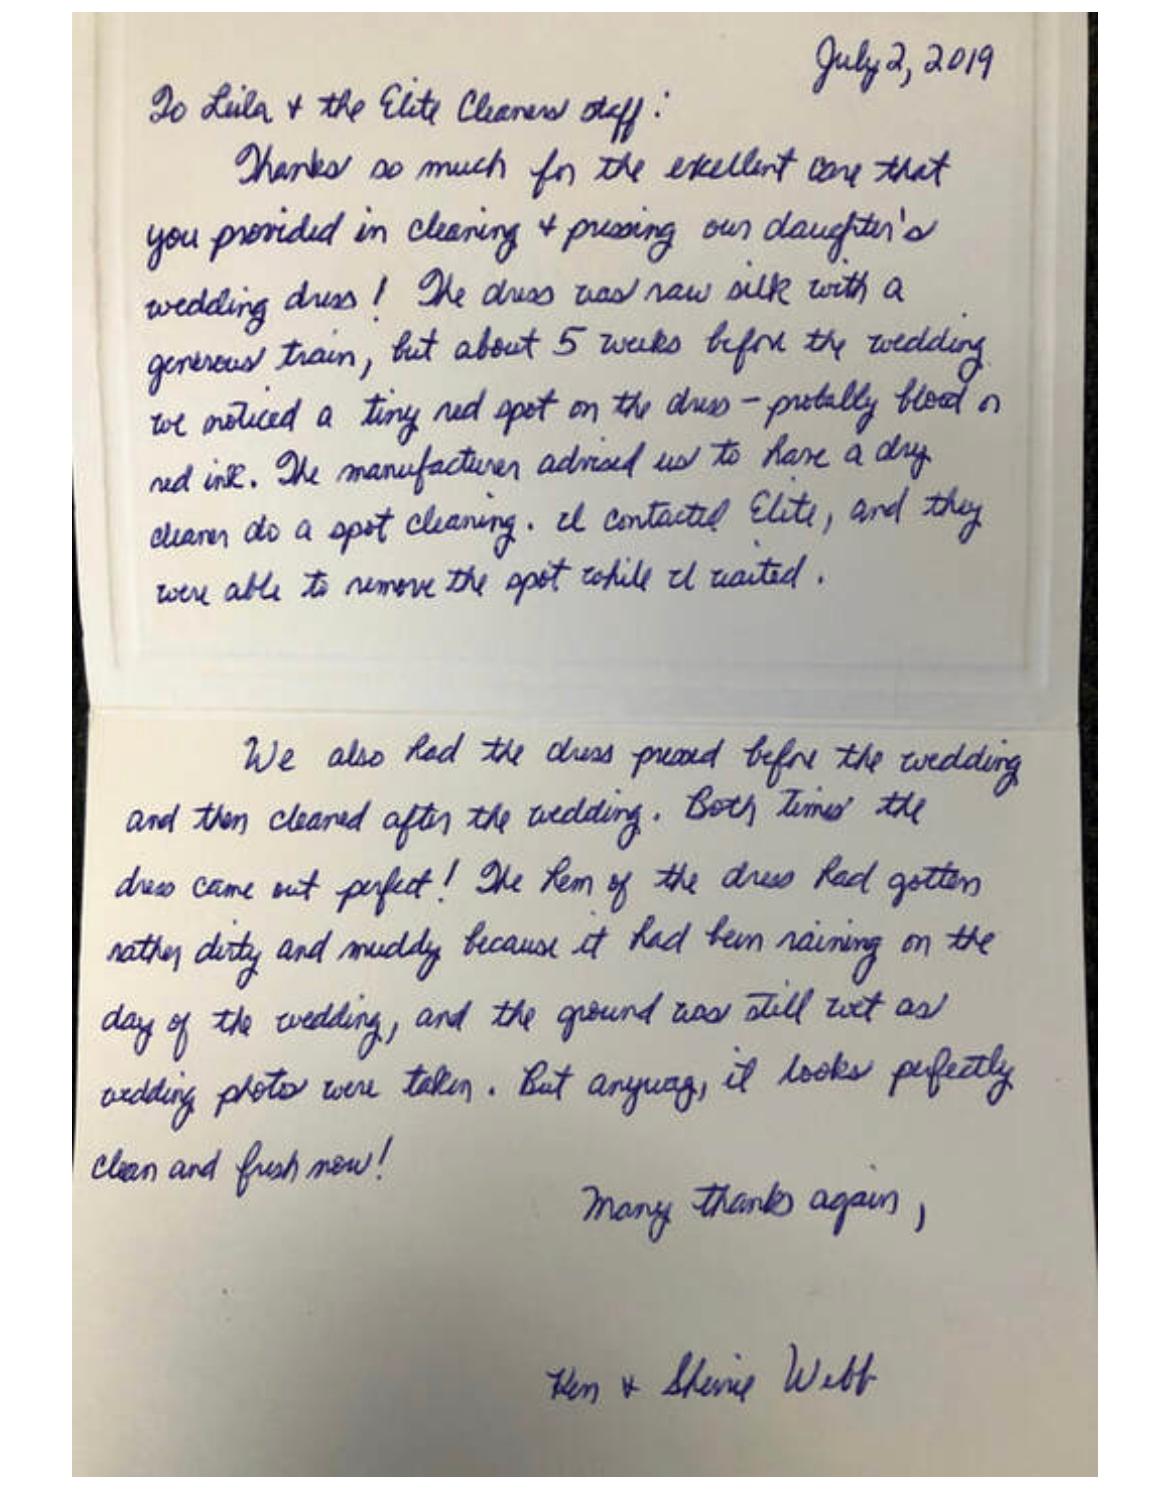 July 2, 2019
To Leila & the Elite Cleaners staff:
Thanks so much for the excellent care that
you provided in cleaning & pressing our daughter's
wedding dress! The dress was raw silk with a
generous train, but about 5 weeks before the wedding
we noticed a tiny red spot on the dress – probably blood or
red ink. The manufacturer advised us to have a dry
cleaner do a spot cleaning. I contacted Elite, and they
were able to remove the spot while I waited.
We also had the dress pressed before the wedding
and then cleaned after the wedding. Both times the
dress came out perfect! The hem of the dress had gotten
rather dirty and muddy because it had been raining on the
day of the wedding, and the ground was still wet as
wedding photos were taken. But anyway, it looks perfectly
clean and fresh now!
Many thanks again,
Ken & Sherrie Webb